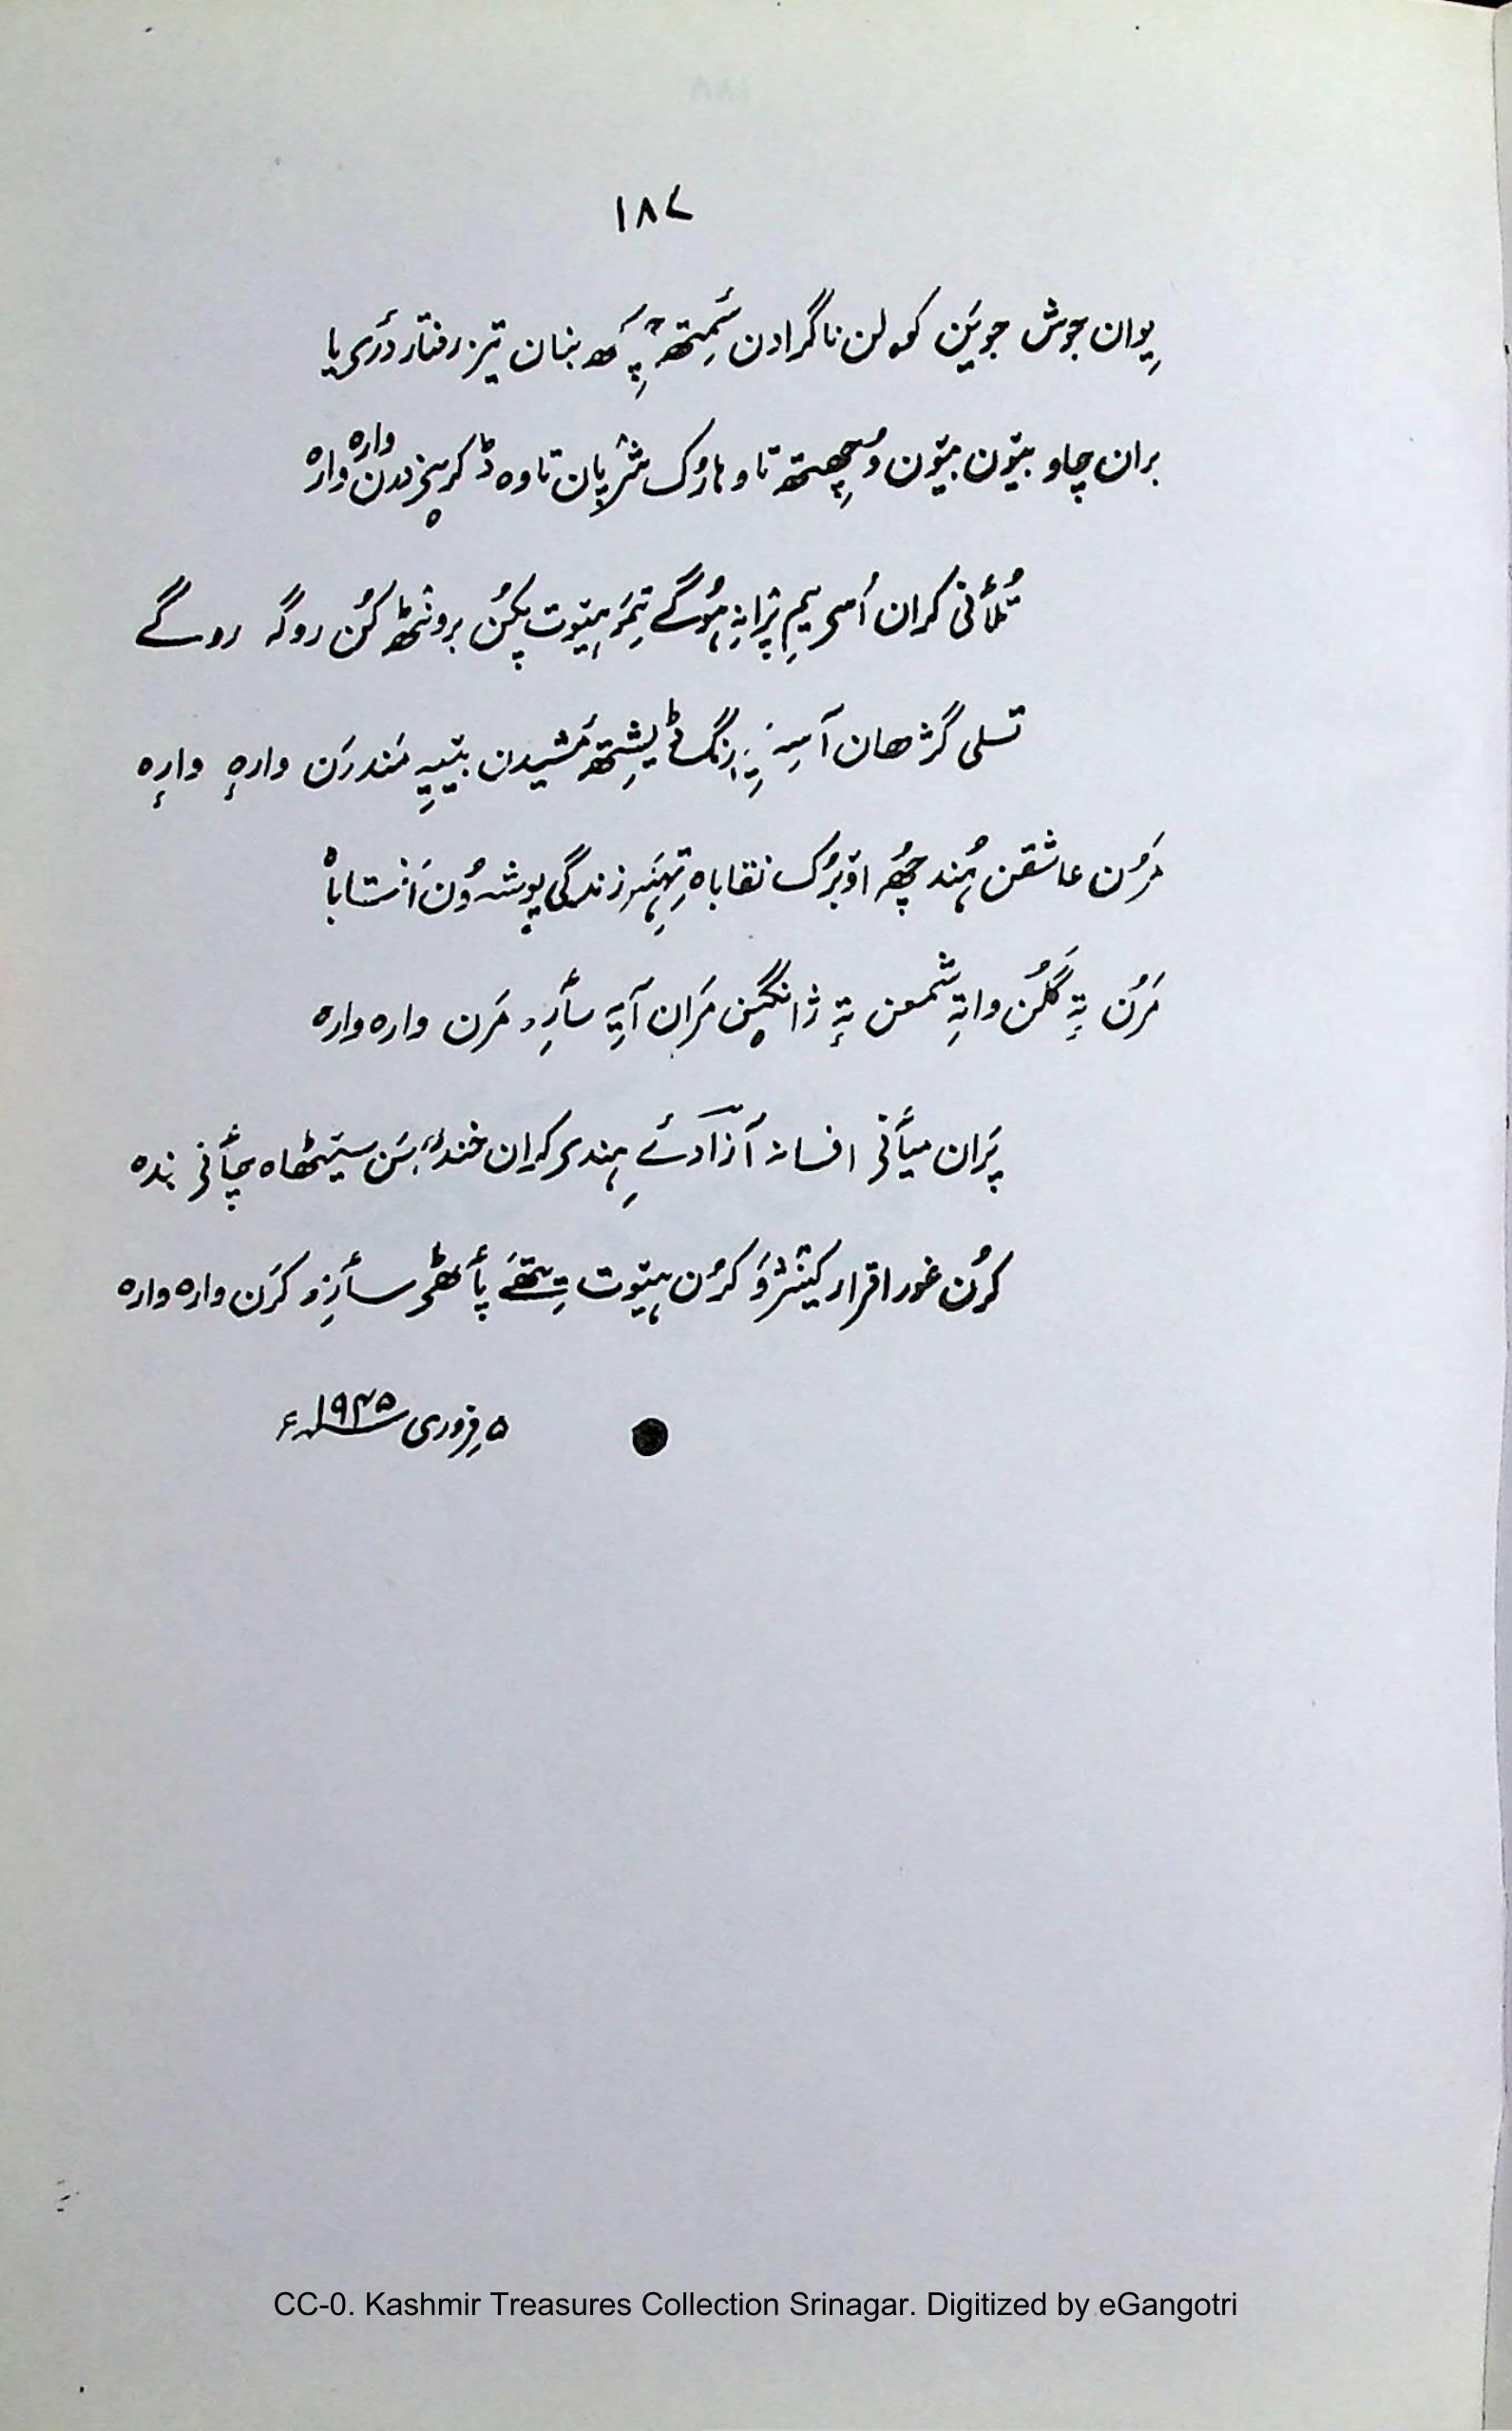 ۱۸۷
یِوان جوش جویَن کولن ناگرادن سَمِتھ پَکھ بنان تیز رفتار دَری یا
بران چاو بیتون بیتون وُچھِتھ تاو ہارُک شرپان تاوہ ڈ کرہنز ندن وارہ وارہ
تُلۍ کران اُسۍ یِم پرانہِ ہُوگے تِمَو ہیوت پکُن برونٹھ کُن روگہ روگے
تسلی گژھان آسہِ رنگ ڈیشِتھ مَشیدن بیٚیہِ مَندرَن وارٕہ وارٕہ
مَرُن عاشقن ہُند چھُہ اوٚبرُک نقاباہ تِہنٛز زندگی پوشہ وُن اَفتاباہ
مَرُن تہٕ گَلُن واتہِ شمعن تہٕ ژانگین مَران آیہِ سأرۍ مَرن وارہ وارہ
پَران میأنۍ افسانہ آزادۍ ہِندۍ کران خندہ سَن سیٹھاہ چأنۍ بندہ
کرُن غور اقرار کینٛژَو کرُن ہیوت تِتھَے پأٹھۍ سأرۍ کرَن وارہ وارہ
۵ فروری ۱۹۴۵ء
CC-0. Kashmir Treasures Collection Srinagar. Digitized by eGangotri